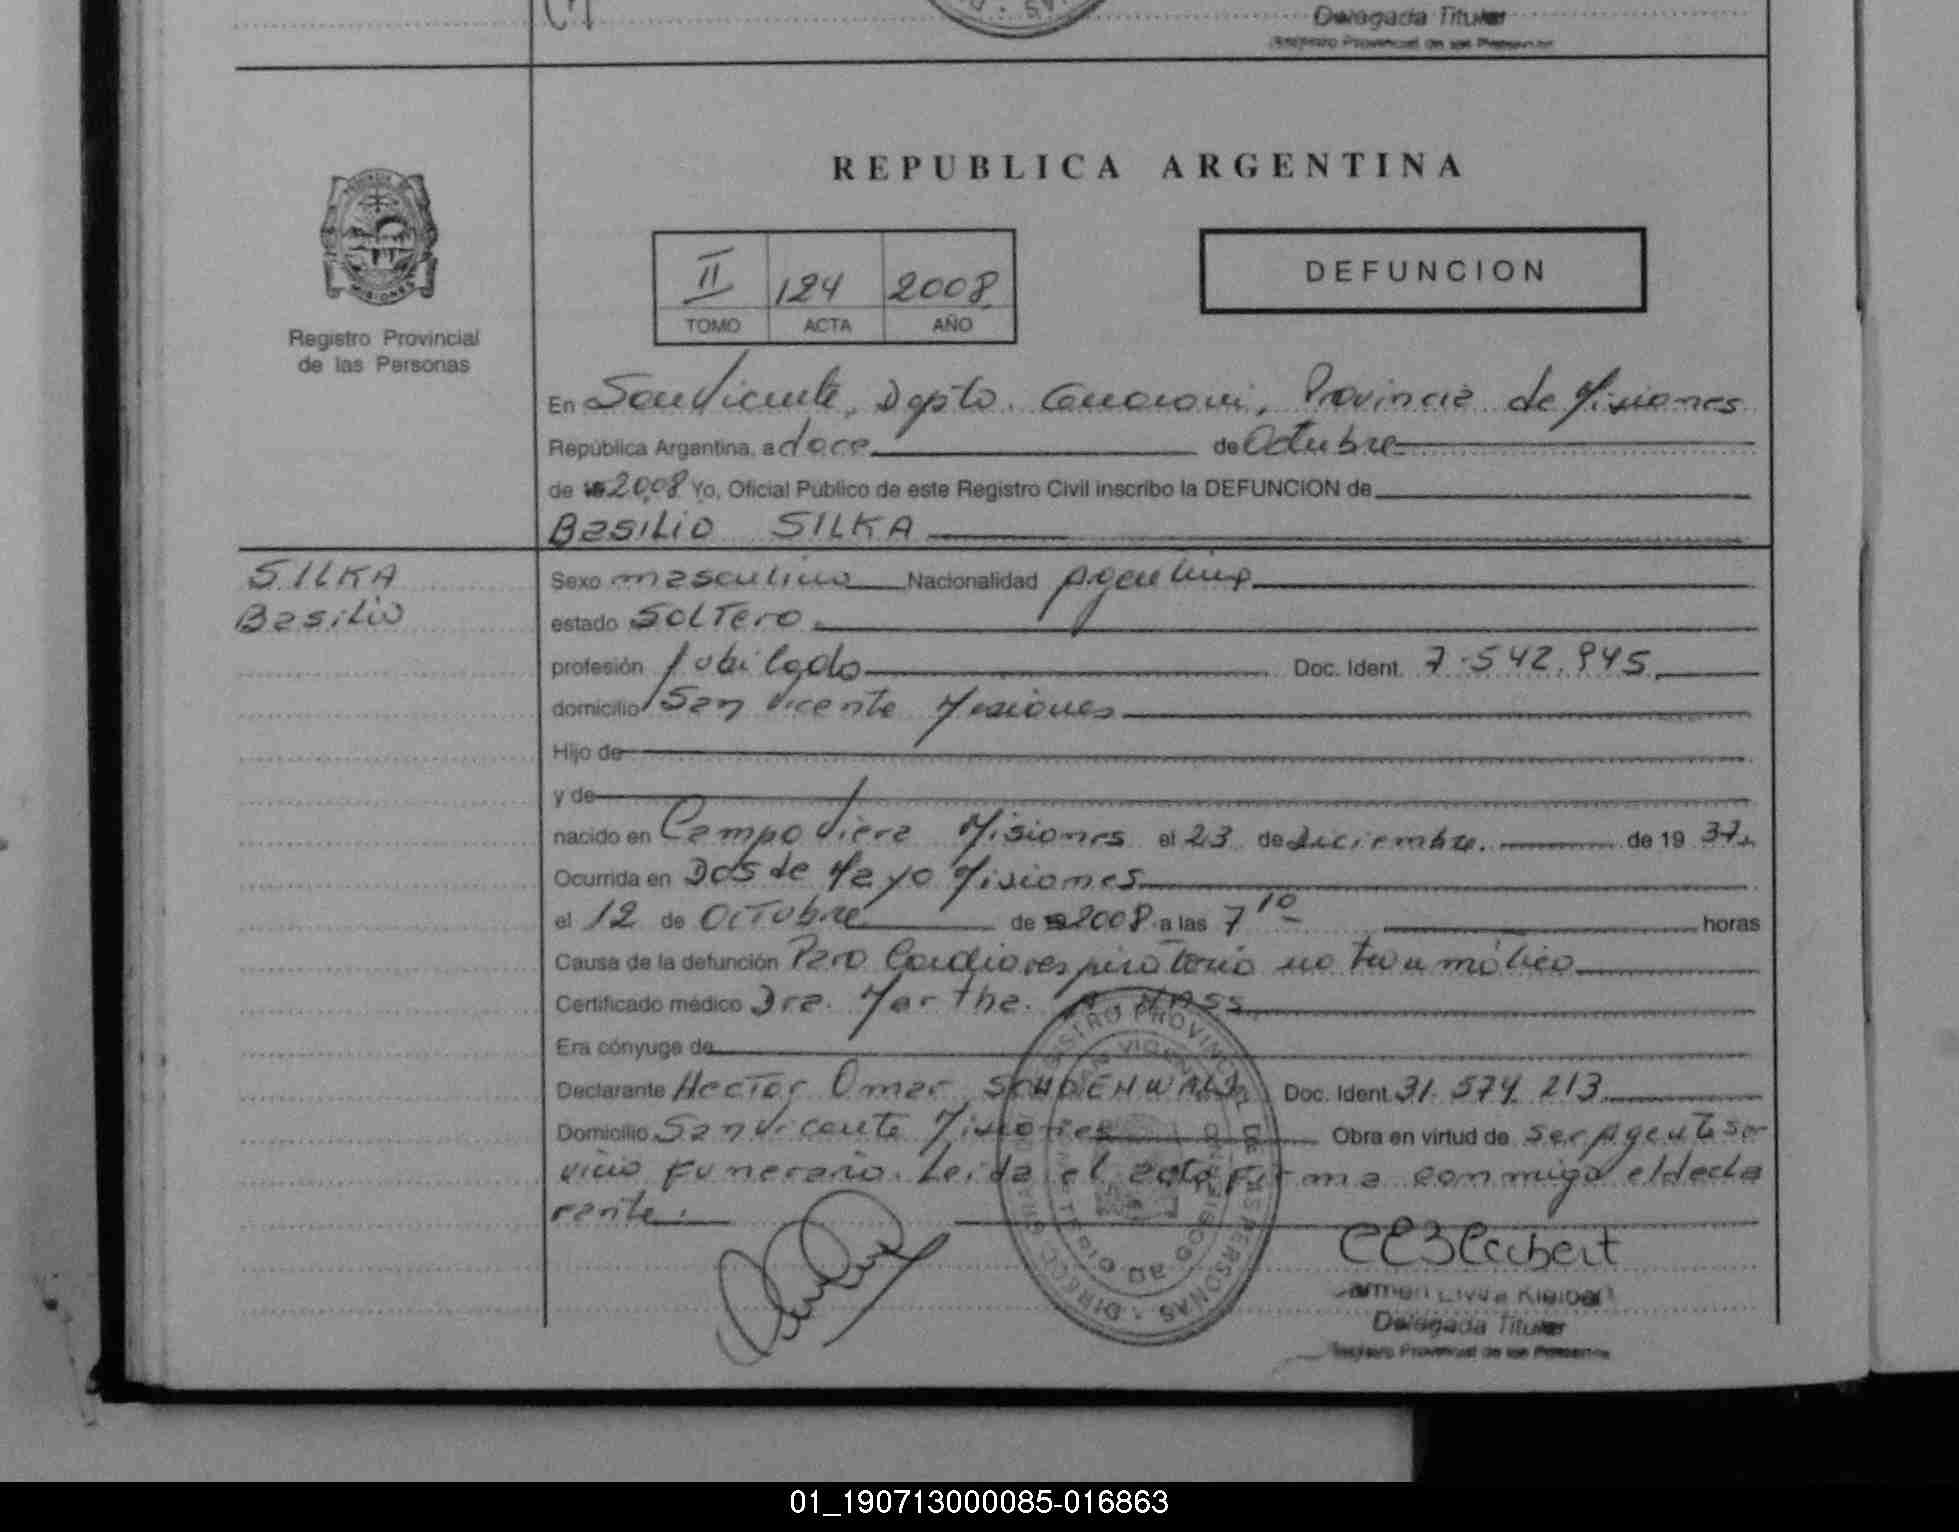 Delegada Titular
Registro Provincial de las Personas
REPUBLICA ARGENTINA
PROVINCIA DE
MISIONES
Registro Provincial
de las Personas
II 124 2008
TOMO ACTA AÑO
DEFUNCION
En San Vicente, Dpto. Guarani, Provincia de Misiones
República Argentina, a doce de Octubre
de 19 2008 Yo, Oficial Público de este Registro Civil inscribo la DEFUNCION de
Basilio SILKA
SILKA
Basilio
Sexo masculino Nacionalidad Argentina
estado Soltero
profesión Jubilado Doc. Ident. 7.542.945
domicilio San Vicente Misiones
Hijo de
y de
nacido en Campo Viera Misiones el 23 de diciembre de 19 37
Ocurrida en Dos de Mayo Misiones
el 12 de Octubre de 19 2008 a las 7 10 horas
Causa de la defunción Paro Cardiorespiratorio no traumático
Certificado médico Dra. Martha. A. Hass
Era cónyuge de
Declarante Hector Omar SCHOENWALD Doc. Ident. 31.574.213
Domicilio San Vicente Misiones Obra en virtud de ser Agente Ser
vicio Funerario. Leida el acta firma conmigo el decla
rante.
Carmen Kleibert
Delegada Titular
Registro Provincial de las Personas
01_190713000085-016863